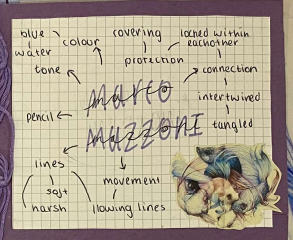 blue
water
colour
tone
covering
protection
locked within
eachother
connection
intertwined
tangled
pencil
Marco
MUZZONI
lines
soft
harsh
movement
flowing lines